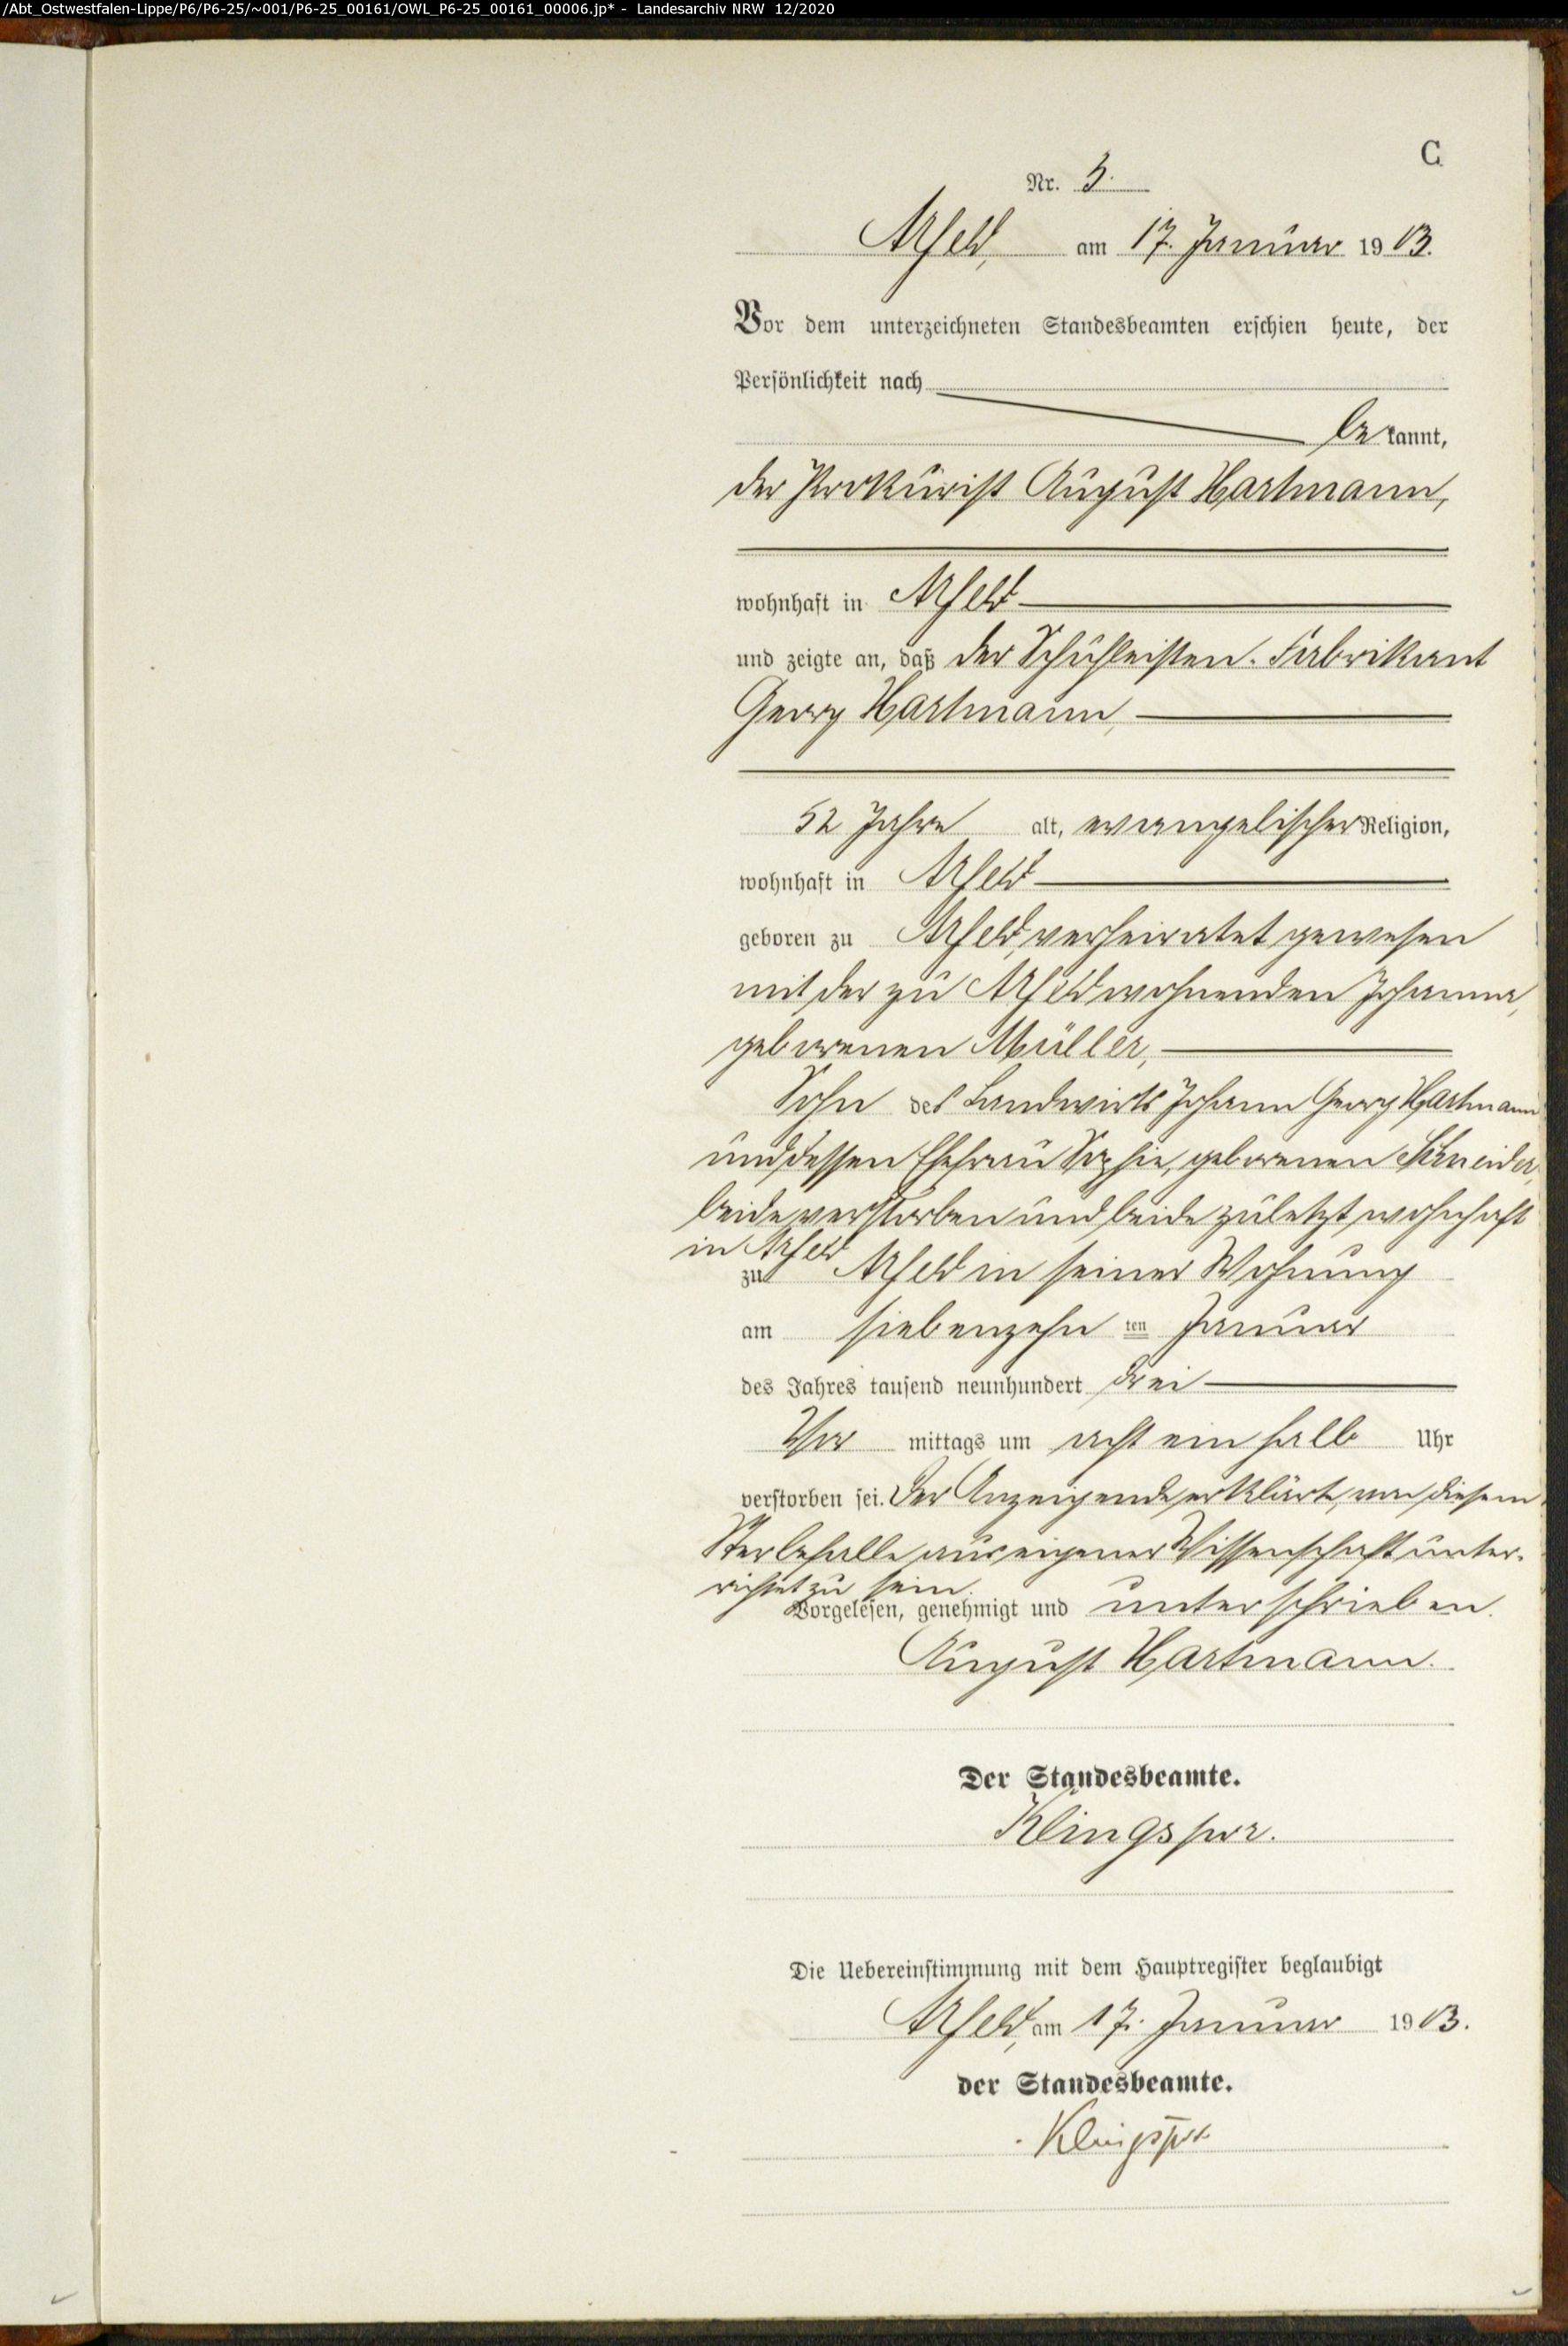 /Abt_Ostwestfalen-Lippe/P6/P6-25/~001/P6-25_00161/OWL_P6-25_00161_00006.jp* - Landesarchiv NRW 12/2020
C
Nr. 3.
Arfeld, am 17. Januar 1903.
Vor dem unterzeichneten Standesbeamten erschien heute, der
Persönlichkeit nach
bekannt,
der Prokurist August Hartmann,
wohnhaft in Arfeld
und zeigte an, daß der Schuhleisten-Fabrikant
Georg Hartmann,
52 Jahre alt, evangelischer Religion,
wohnhaft in Arfeld
geboren zu Arfeld, verheiratet gewesen
mit der zu Arfeld wohnenden Johanna,
geborenen Müller,
Sohn des Landwirts Johann Georg Hartmann
und dessen Ehefrau Sophie, geborenen Schneider,
beide verstorben und beide zuletzt wohnhaft
in Arfeld
zu Arfeld in seiner Wohnung
am siebenzehn ten Januar
des Jahres tausend neunhundert drei
Vor mittags um acht ein halb Uhr
verstorben sei. Der Anzeigende erklärte, von diesem
Sterbefalle aus eigener Wissenschaft unter-
richtet zu sein.
Vorgelesen, genehmigt und unterschrieben.
August Hartmann.
Der Standesbeamte.
Klingspor.
Die Uebereinstimmung mit dem Hauptregister beglaubigt
Arfeld, am 17. Januar 1903.
der Standesbeamte.
Klingspor